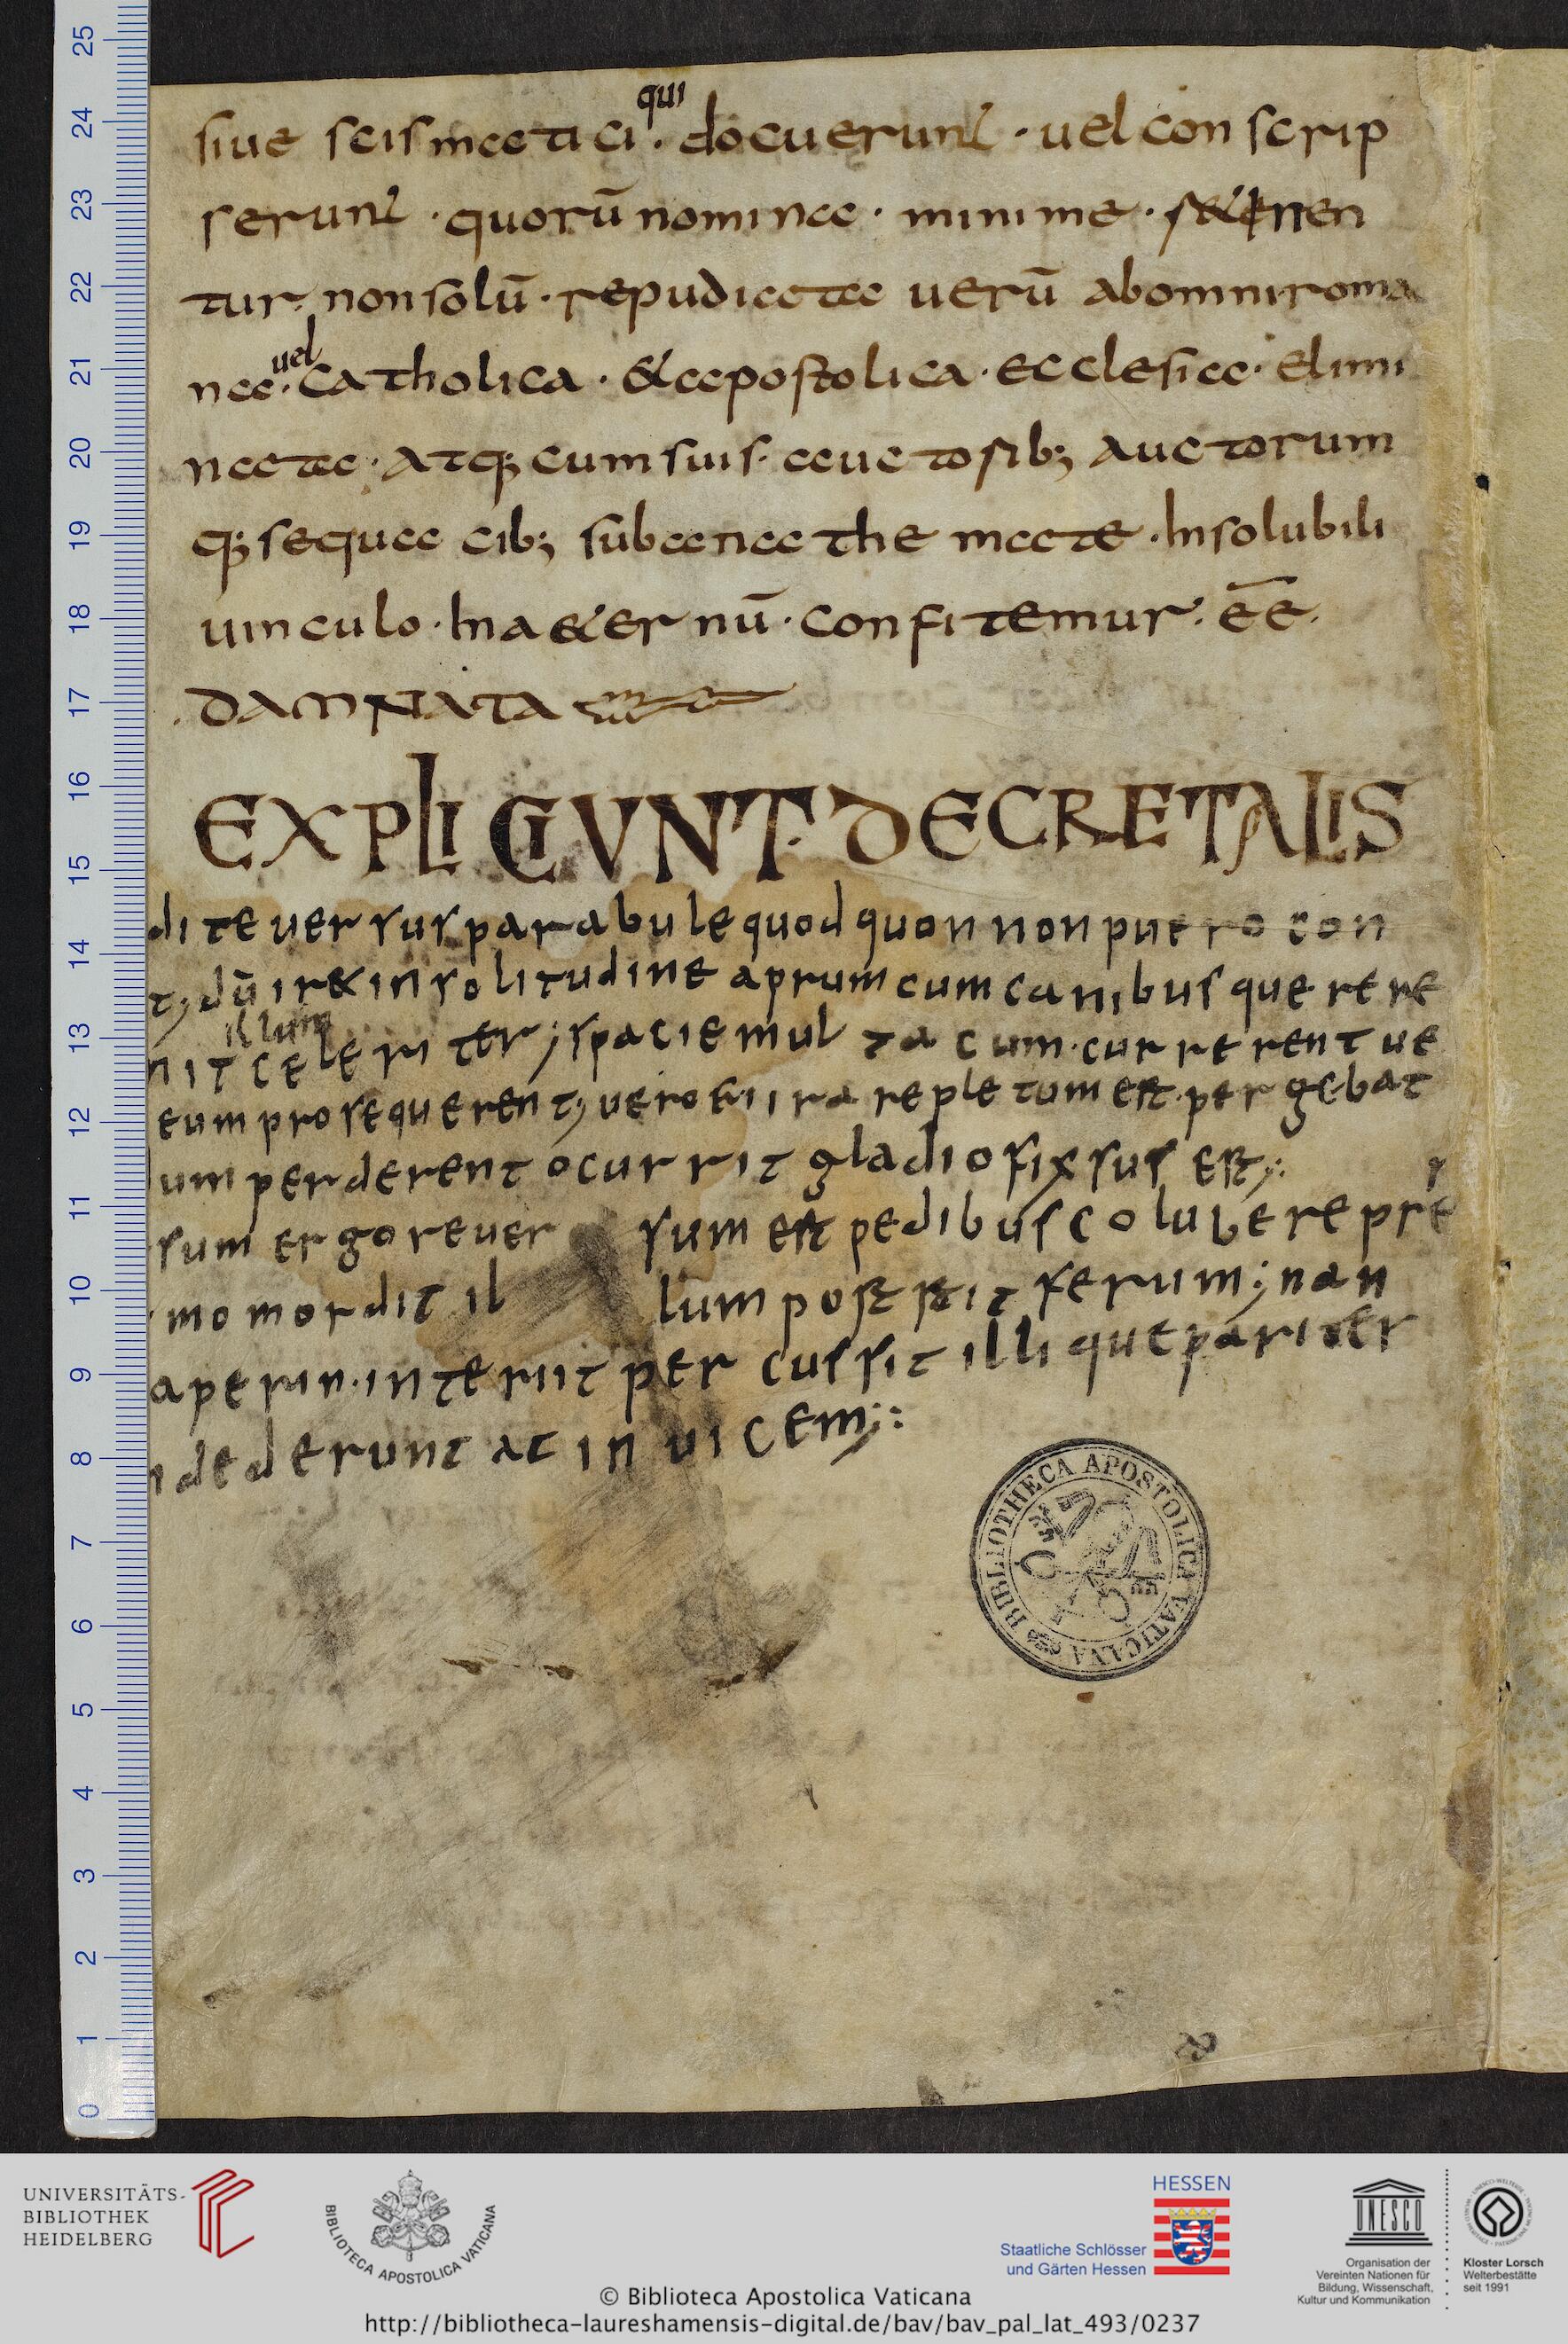 qui
siue scismatici · docuerunt · uel conscrip
serunt · quorū nomina · minime · r&enen
tur · non solū · repudiata uerū ab omni roma
uel
na · catholica · & apostolica · ecclesia · elimi
nata · atq; cum suis · auctorib; auctorum
q; sequacib; sub anathemate · Insolubili
uinculo · In a&ernū · confitemur · ēē ·
· DAMNATA
EXPLICIUNT · DECRETALIS
dite uersus parabule quod quon non puero con
t; dū ir& in solitudine aprum cum canibus querere
illum
nit celeriter; spacie multa cum · currerent ue
eum prosequerent; uero ira repletum est · pergebat
um perderent ocurrit gladio fixsus est;
sum ergo reuer sum est pedibus colubere pre
momordit il lum post ferum; nan
aperin · interiit percussit illique pariter
dederunt at in uicem;:
BIBLIOTHECA APOSTOLICA VATICANA
25
24
23
22
21
20
19
18
17
16
15
14
13
12
11
10
9
8
7
6
5
4
3
2
1
0
UNIVERSITÄTS-
BIBLIOTHEK
HEIDELBERG
BIBLIOTECA APOSTOLICA VATICANA
HESSEN
Staatliche Schlösser
und Gärten Hessen
UNESCO
Organisation der
Vereinten Nationen für
Bildung, Wissenschaft,
Kultur und Kommunikation
Kloster Lorsch
Welterbestätte
seit 1991
© Biblioteca Apostolica Vaticana
http://bibliotheca-laureshamensis-digital.de/bav/bav_pal_lat_493/0237